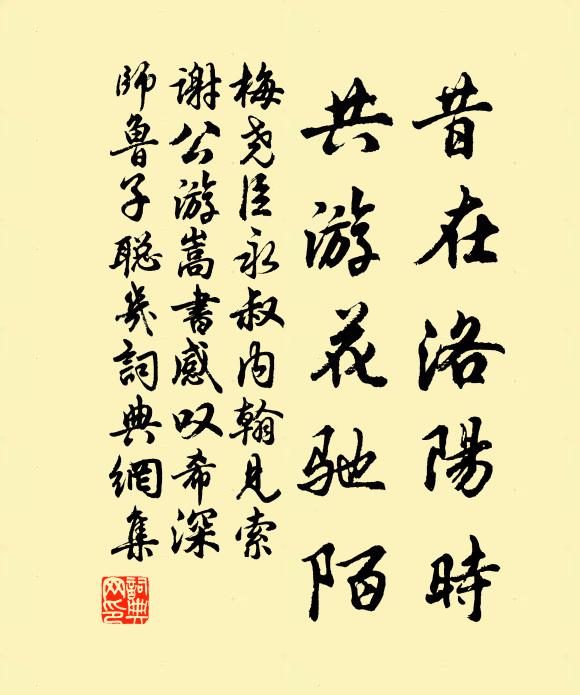 昔在洛陽時
共游花馳陌
梅尧臣永叔内翰見索
谢公游嵩書感叹希深
師魯子聪幾詞典網集
詞典网印